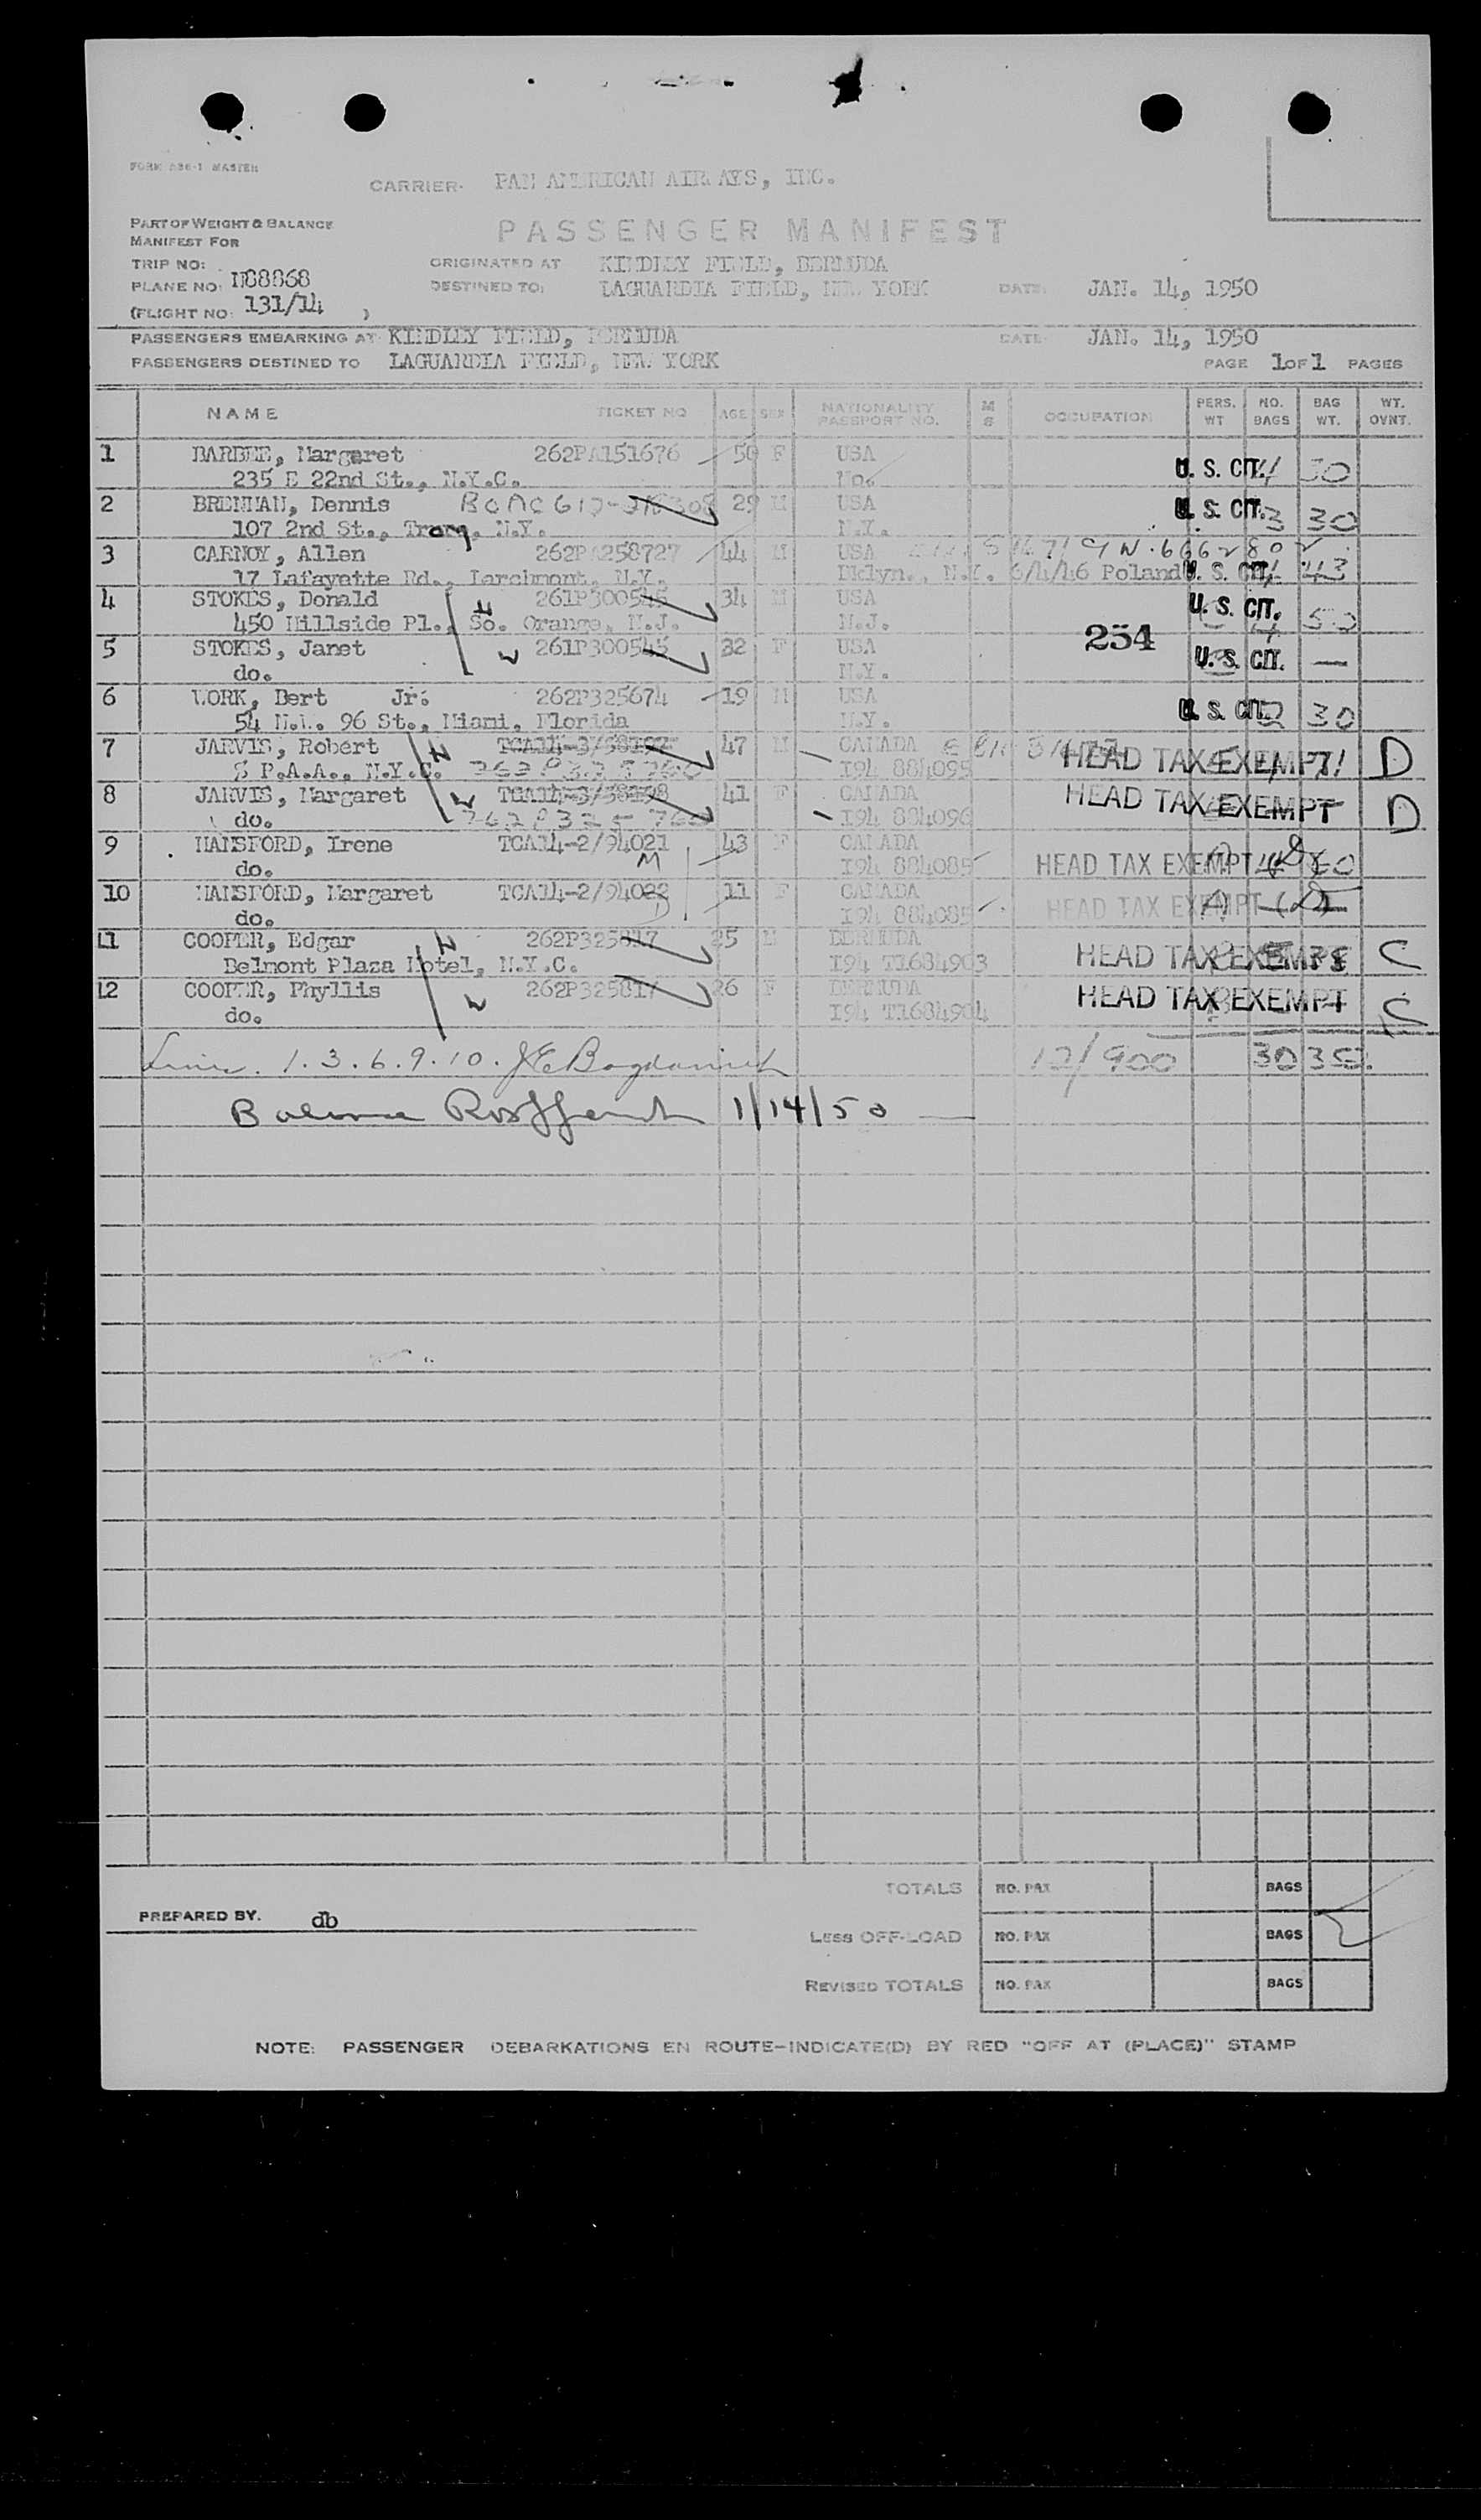 FORM 836-1 MASTER
CARRIER- PAN AMERICAN AIRWAYS, INC.
PART OF WEIGHT & BALANCE
MANIFEST FOR
PASSENGER MANIFEST
TRIP NO: ORIGINATED AT KINDLEY FIELD, BERMUDA
PLANE NO: N88868 DESTINED TO: LAGUARDIA FIELD, NEW YORK DATE: JAN. 14, 1950
(FLIGHT NO: 131/14 )
PASSENGERS EMBARKING AT KINDLEY FIELD, BERMUDA DATE: JAN. 14, 1950
PASSENGERS DESTINED TO LAGUARDIA FIELD, NEW YORK PAGE 1 OF 1 PAGES
NAME TICKET NO AGE SEX NATIONALITY PASSPORT NO. M S OCCUPATION PERS. WT NO. BAGS BAG WT. WT. OVNT.
1 BARBEE, Margaret 262PA151676 50 F USA U. S. CIT. 4 30
235 E 22nd St., N.Y.C. Mo.
2 BRENNAN, Dennis BOAC 29 M USA U. S. CIT. 3 30
107 2nd St., Troy, N.Y. N.Y.
3 CARNOY, Allen 262PA258727 44 M USA
17 Lafayette Rd., Larchmont, N.Y. Bklyn., N.Y. 6/4/46 Poland U. S. CIT. 43
4 STOKES, Donald 261P300545 34 M USA U. S. CIT. 50
450 Hillside Pl., So. Orange, N.J. N.J. 254
5 STOKES, Janet 261P300545 32 F USA U. S. CIT. —
do. N.Y.
6 WORK, Bert Jr. 262P325674 19 M USA U. S. CIT. 2 30
54 N.W. 96 St., Miami, Florida N.Y.
7 JARVIS, Robert TCA14-3/58197 47 M CANADA HEAD TAX EXEMPT 71 D
% P.A.A., N.Y.C. I94 884095
8 JARVIS, Margaret TCA14-3/58198 41 F CANADA HEAD TAX EXEMPT D
do. I94 884096
9 HANSFORD, Irene TCA14-2/94021 43 F CANADA HEAD TAX EXEMPT
do. M I94 884085
10 HANSFORD, Margaret TCA14-2/94022 11 F CANADA HEAD TAX EXEMPT
do. D I94 884085
11 COOPER, Edgar 262P325817 25 M BERMUDA HEAD TAX EXEMPT C
Belmont Plaza Hotel, N.Y.C. I94 T1684903
12 COOPER, Phyllis 262P325817 26 F BERMUDA HEAD TAX EXEMPT C
do. I94 T1684904
1. 3. 6. 9. 10. 12/900 30
1/14/50 —
TOTALS NO. PAX BAGS
PREPARED BY. db
LESS OFF-LOAD NO. PAX BAGS
REVISED TOTALS NO. PAX BAGS
NOTE: PASSENGER DEBARKATIONS EN ROUTE—INDICATE(D) BY RED "OFF AT (PLACE)" STAMP